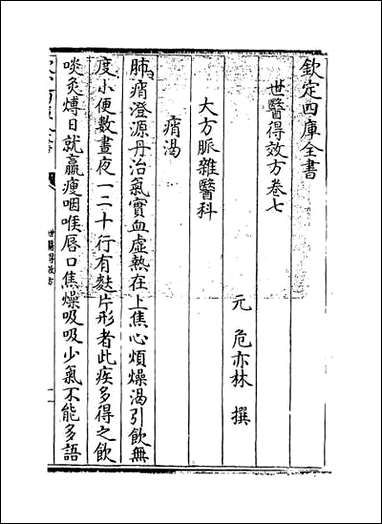 欽定四庫全書
世醫得效方卷七
元 危亦林 撰
大方脈雜醫科
痟渴
肺痟澄源丹治氣實血虛熱在上焦心煩燥渴引飲無
度小便數晝夜一二十行有麩片形者此疾多得之飲
啖炙煿日就羸瘦咽喉唇口焦燥吸吸少氣不能多語
世醫得效方